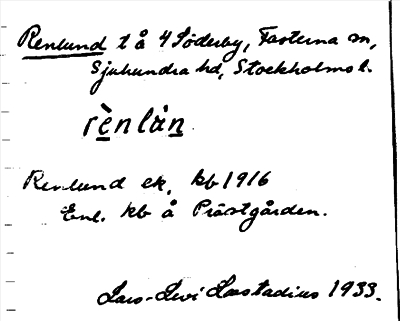 Renlund t å 4 Söderby, Fasterna sn,
Sjuhundra hd, Stockholms l.
rènlùn
Renlund ek, kb 1916
Enl. kb å Prästgården.
Lars-Levi Læstadius 1933.